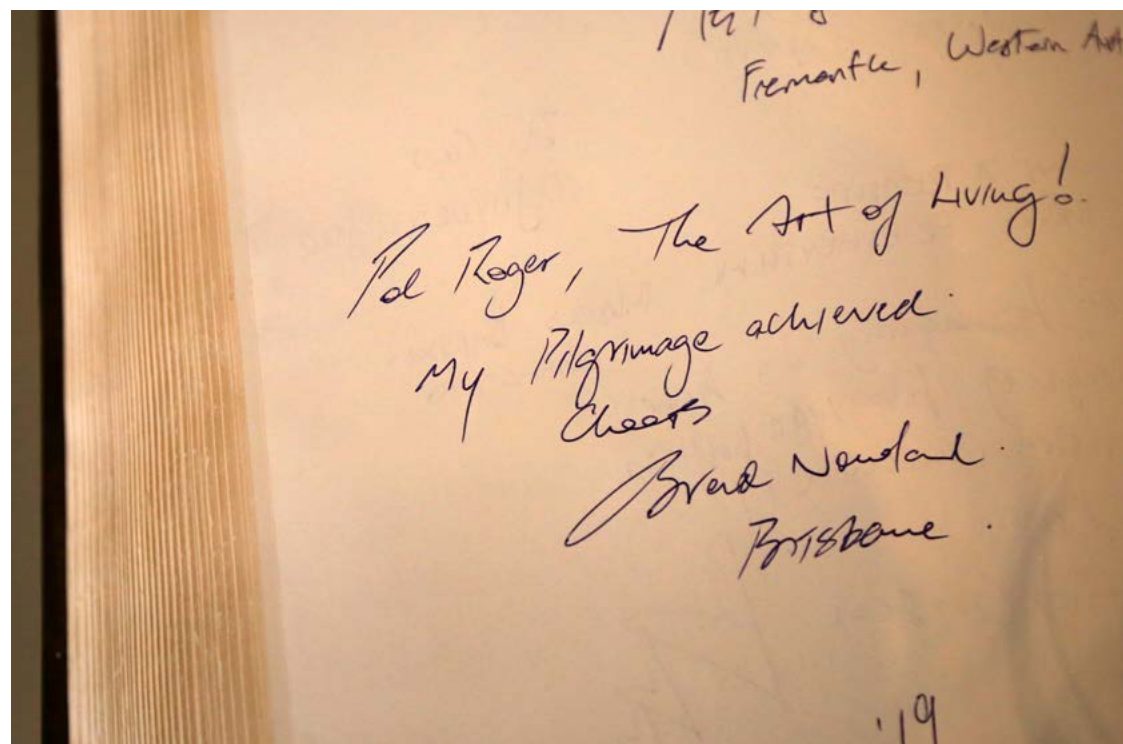 Fremantle, Western
Pol Roger, The Art of Living!
My Pilgrimage achieved.
Cheers
Brad Newland.
Brisbane.
'19